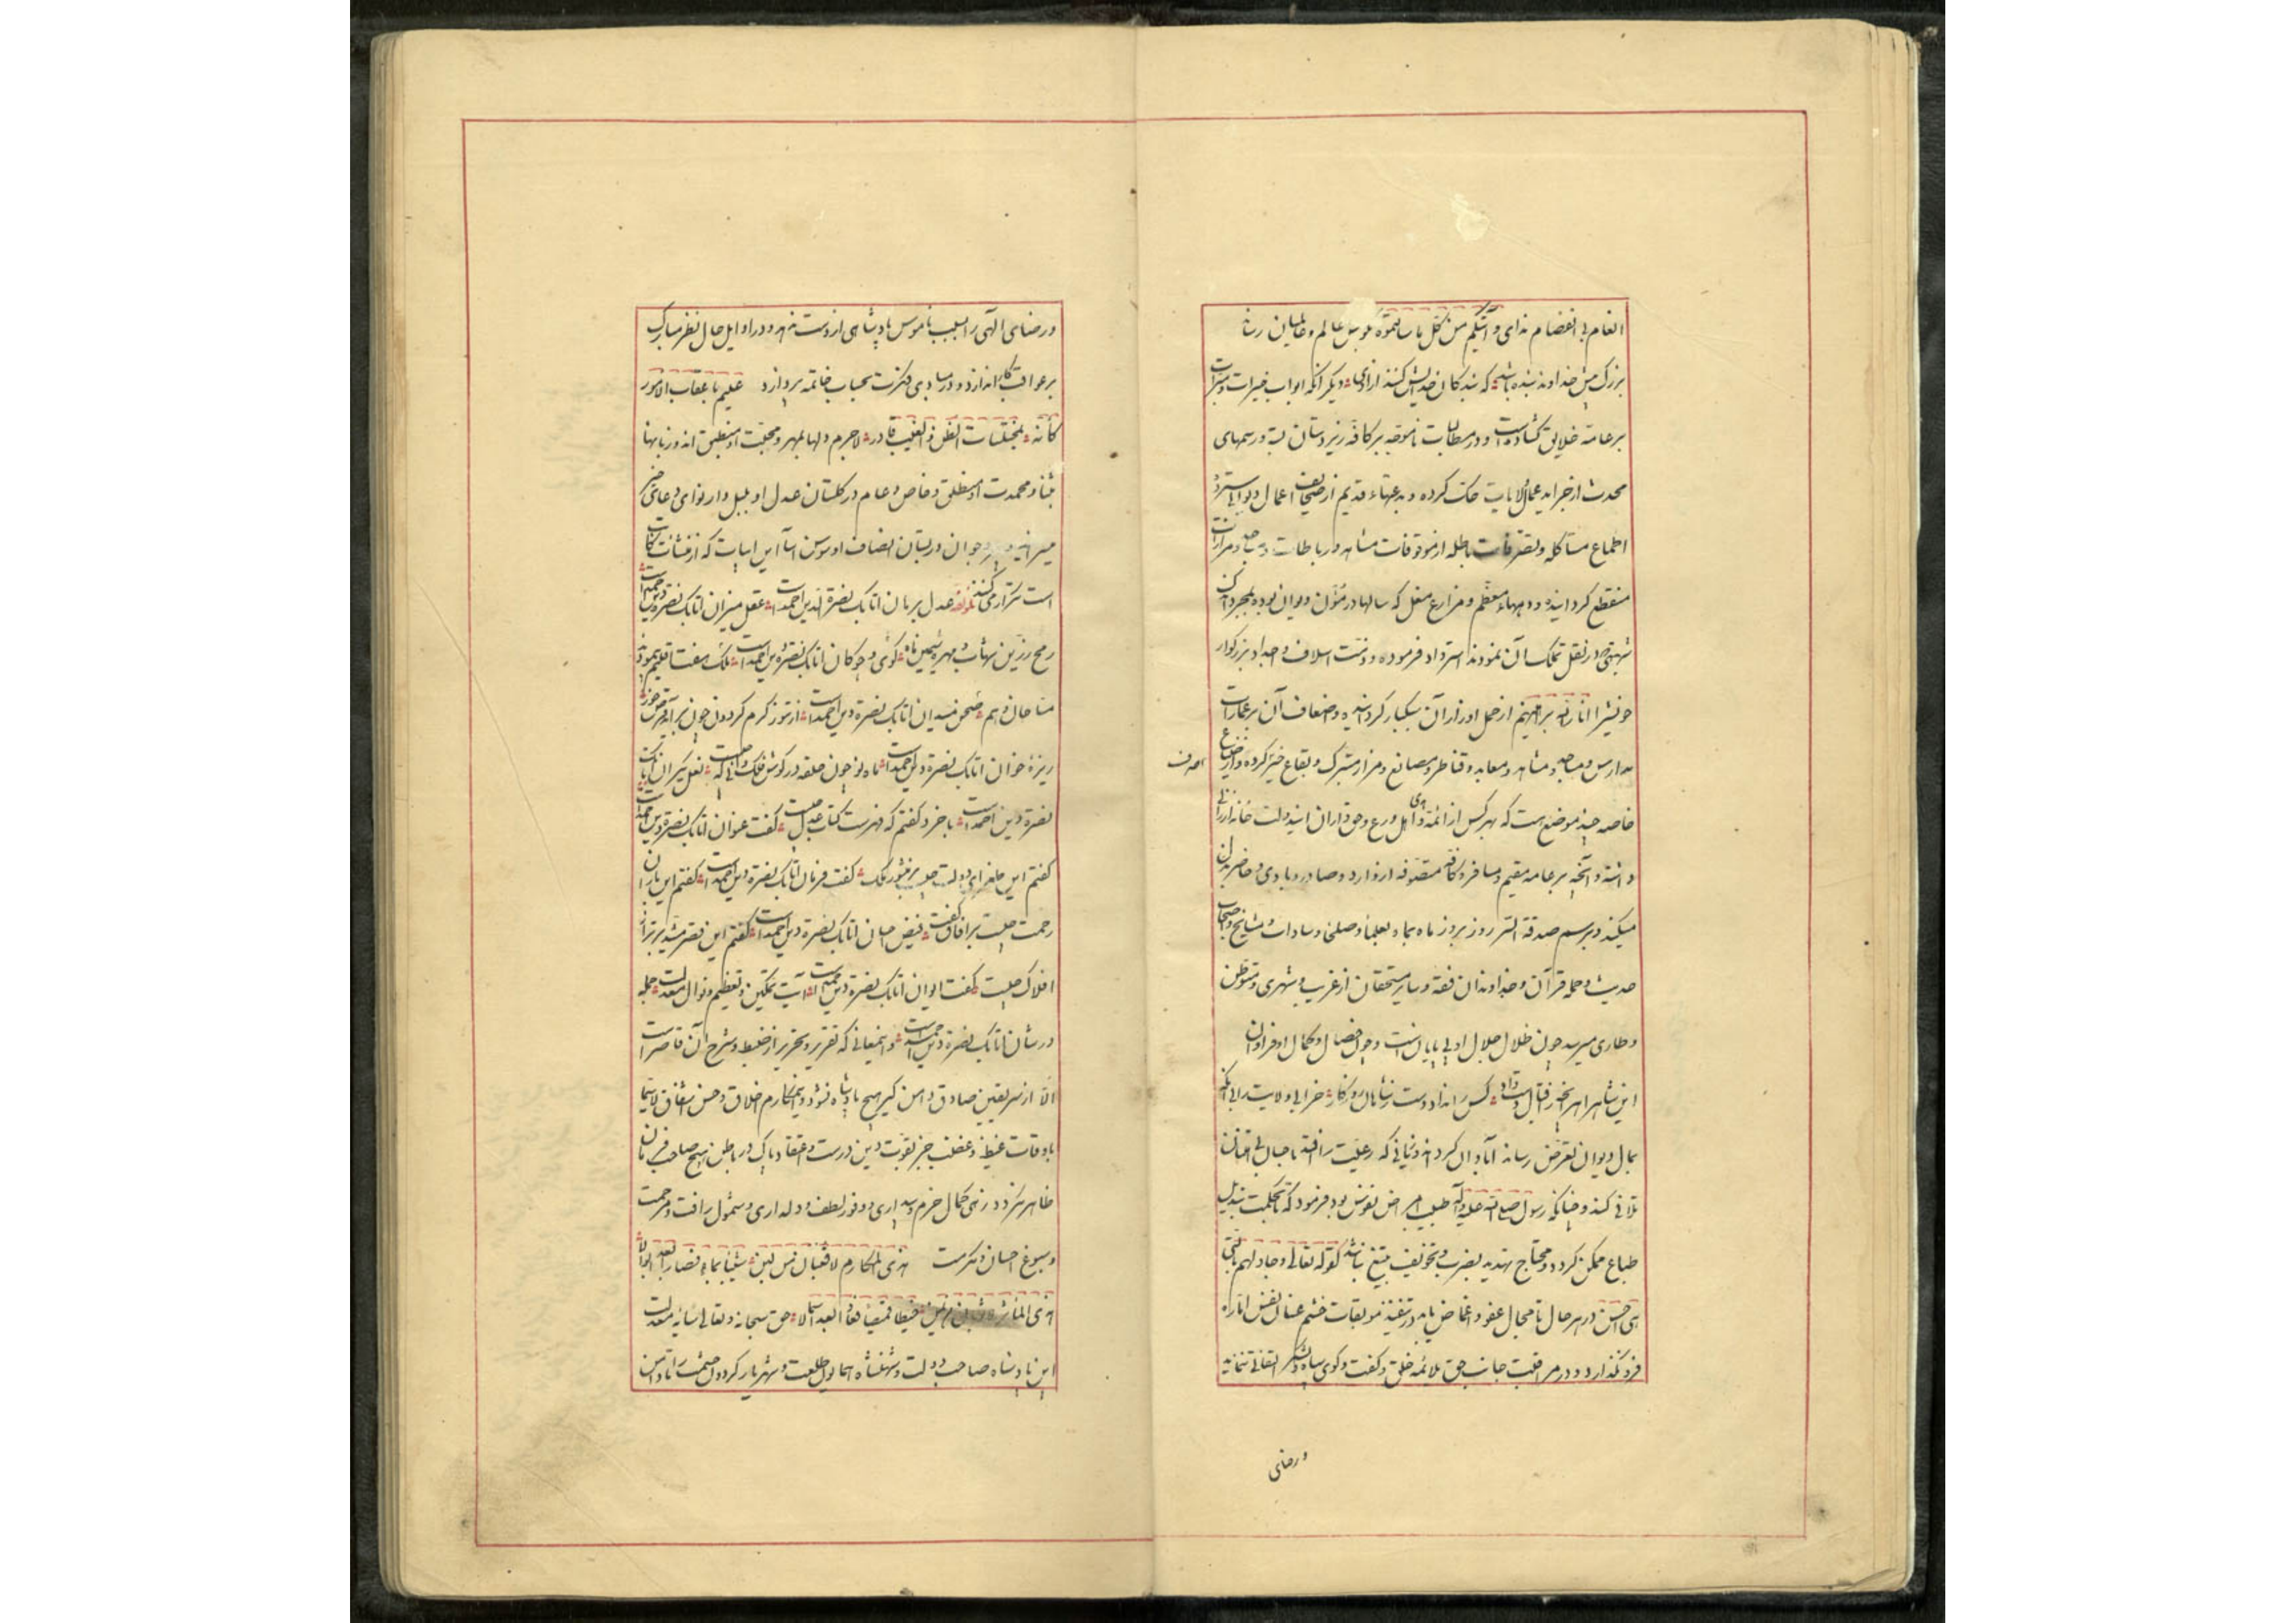 انعام بی انفضام ندای و آتیکم من کل ما سألتموه بگوش عالم و عالمیان رساند
بزرگ منش خداوند بنده باشد که بندگان خدایش کنند ازادی دیگر آنکه ابواب خیرات و مبرات
بر عامه خلایق گشاده است و در مطالبات ناموجه بر کافه زیردستان بسته و رسمهای
محدث از جراید عمال ولایات حک کرده و بدعتهاء قدیم از صحایف اعمال دیوانی سترده
اطماع مستأکله و تصرفات باطله از موقوفات مشاهد و رباطات و مساجد و مزارات
منقطع گردانیده و دیههاء معظم و مزارع مغل که سالها در مؤن دیوان بوده بمجرد آنک
شبهتی در نقل تملک آن نمودند استرداد فرموده و ذمت اسلاف و اجداد بزرگوار
خویش را انار الله براهینهم از حمل اوزار آن سبکبار گردانیده و اضعاف آن بر عمارات
مدارس و مساجد و مشاهد و معابد و قناطر و مصانع و مزار متبرک و بقاع خیر کرده و از ضیاع
خاصه چند موضع است که بهر کس از ائمه و اهل ورع و حق داران این دولت خانه ارزانی
داشته و آنچه بر عامه مقیم و مسافر و کافه متصوفه از وارد و صادر و بادی و حاضر بذل
میکند و برسم صدقة السر روز بروز ماه بماه بعلما و صلحا و سادات و مشایخ و اصحاب
حدیث و حمله قرآن و خداوندان فقه و سایر مستحقان از غریب و شهری و متوطن
و طاری میرسد چون ظلال جلال او بی پایانست و چون خصال و کمال او فراوان
این شاهراه بخیر اقبال داد دست کس را نداد دست ز شاهان روزگار خرابی ولایت را بی آنکه
بمال دیوان تعرض رساند آبادان کردند و زمانی که رعیت را افتد باحسان بی امتنان
تلافی کند و چنانکه رسول صلی الله علیه و آله طبیب امراض نفوس بود فرمود که تا بحکمت تبدیل
طباع ممکن گردد و محتاج تهدید بضرب و تخویف بتیغ نباشد کقوله تعالی و جادلهم بالتی
هی احسن در هر حال تا مجال عفو و اغماض یابد در تنفیذ موبقات خشم عنان نفس اماره
فرو نگذارد و در مراقبت جانب حق بلائمه خلق و گفت و گوی سپاه و لشکر التفاتی ننماید
و رضای
و رضای الهی را بسبب ناموس پادشاهی از دست ندهد و در اوایل حال نظر مبارک
بر عواقب کار اندازد و در مبادی فکرت بحساب خاتمه پردازد علیم باعقاب الامور
کانه بمختلسات الظن فی الغیب قادر لاجرم دلها بمهر و محبت او منطبق اند و زبانها
بثنا و محمدت او منطلق و خاص و عام در گلستان عدل او بلبل وار نوای دعای خیر
میزنند و پیر و جوان در بستان انصاف او سوسن آسا این ابیات که از منشآت کاتب
است تکرار می‌کنند لمؤلفه عدل برهان اتابک نصرة الدین احمد است عقل میزان اتابک نصرة دین احمد است
رمح زرین شهاب و مهره سیمین ماه گوی و چوگان اتابک نصرة دین احمد است ملک هفت اقلیم پیموده
مساحان وهم صحن میدان اتابک نصرة دین احمد است از تنور گرم گردون چون برآید قرص خور
ریزهٔ خوان اتابک نصرة دین احمد است ماه نو چون حلقه در گوش فلک دانی که چیست نعل یکران اتابک
نصرة دین احمد است با خرد گفتم که فهرست کتاب عدل چیست گفت عنوان اتابک نصرة دین احمد است
گفتم این طغرای دولت چیست بر منشور ملک گفت فرمان اتابک نصرة دین احمد است گفتم این باران
رحمت چیست بر آفاق گفت فیض احسان اتابک نصرة دین احمد است گفتم این قصر مشید برتر از
افلاک چیست گفت ایوان اتابک نصرة دین احمد است آیت تمکین و تعظیم و نوال معدلت جمله
در شان اتابک نصرة دین احمد است و این معانی که تقریر و تحریر از ضبط و شرح آن قاصر است
الا از سر یقین صادق دامن گیر هیچ پادشاه نشود و این مکارم اخلاق و حسن اشفاق لاسیما
باوقات غیظ و غضب جز بقوت دین درست و اعتقاد پاک در باطن هیچ صاحب فرمان
ظاهر نگردد زهی کمال حزم و بیداری و وفور لطف و دلداری و شمول رافت و مرحمت
و سبوغ احسان و مکرمت هذی المکارم لا قعبان من لبن شیبا بماء فصارا بعد ابوالا
هذی المآثر لا ثوبان من عدن خیطا قمیصا فعادا بعد اسمالا حق سبحانه و تعالی سایه معدلت
این پادشاه صاحب دولت و شهنشاه همایون طلعت و شهریار گردون حشمت را تا دامن